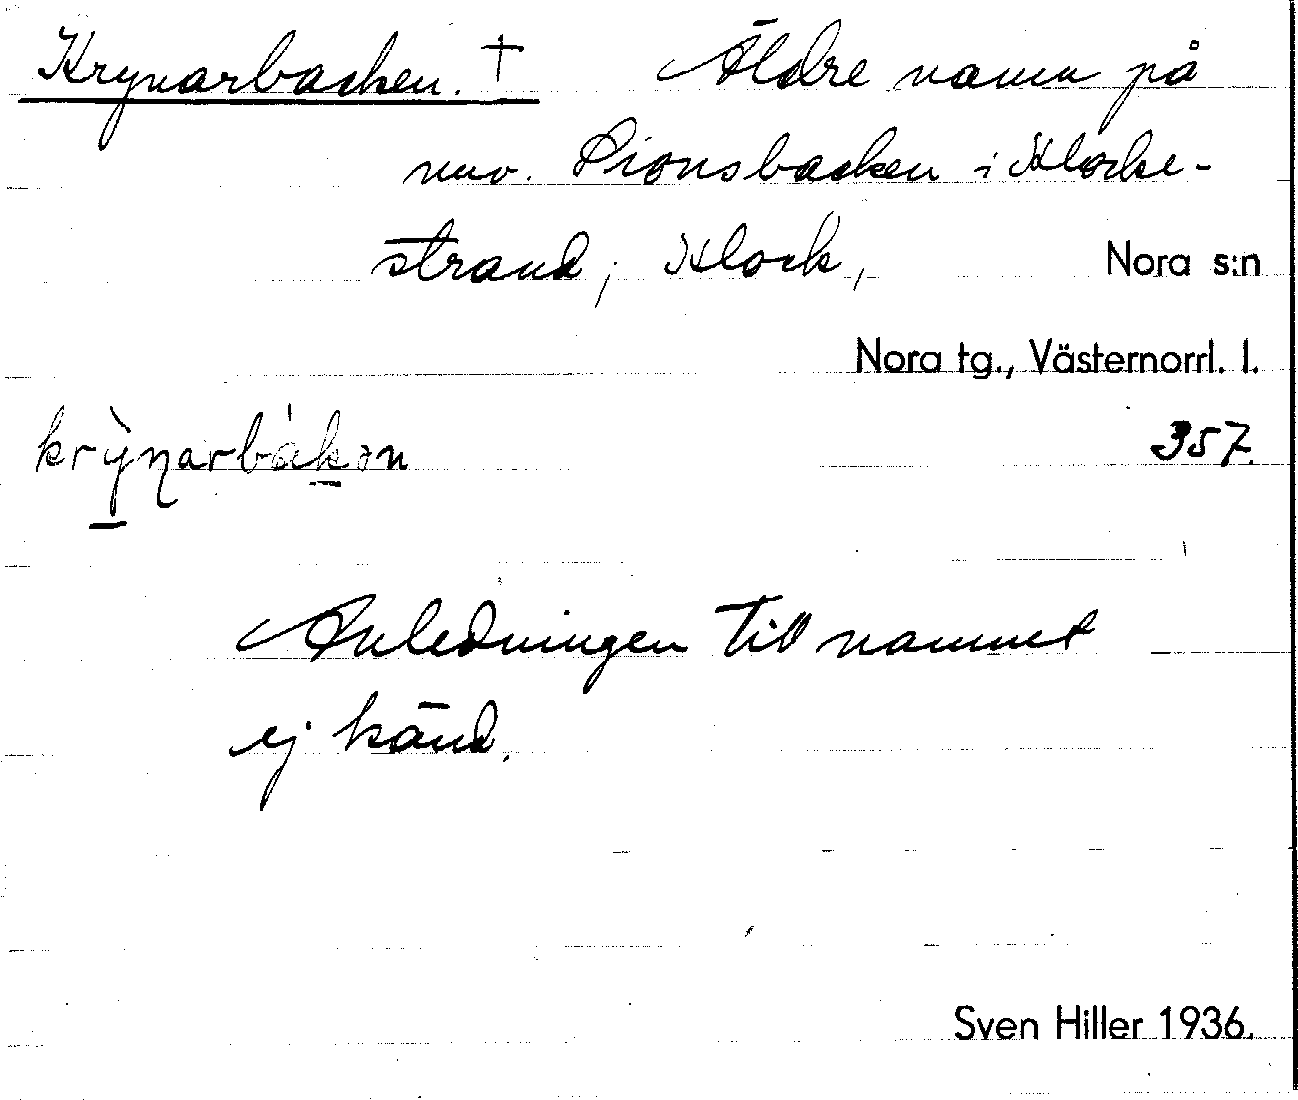 Krynarbacken. † Äldre namn på
nuv. Sionsbacken i Klocke-
strand; Klock, Nora s:n
Nora tg., Västernorrl. l.
krỳn̥arbákən 357.
Anledningen till namnet
ej känd.
Sven Hiller 1936.